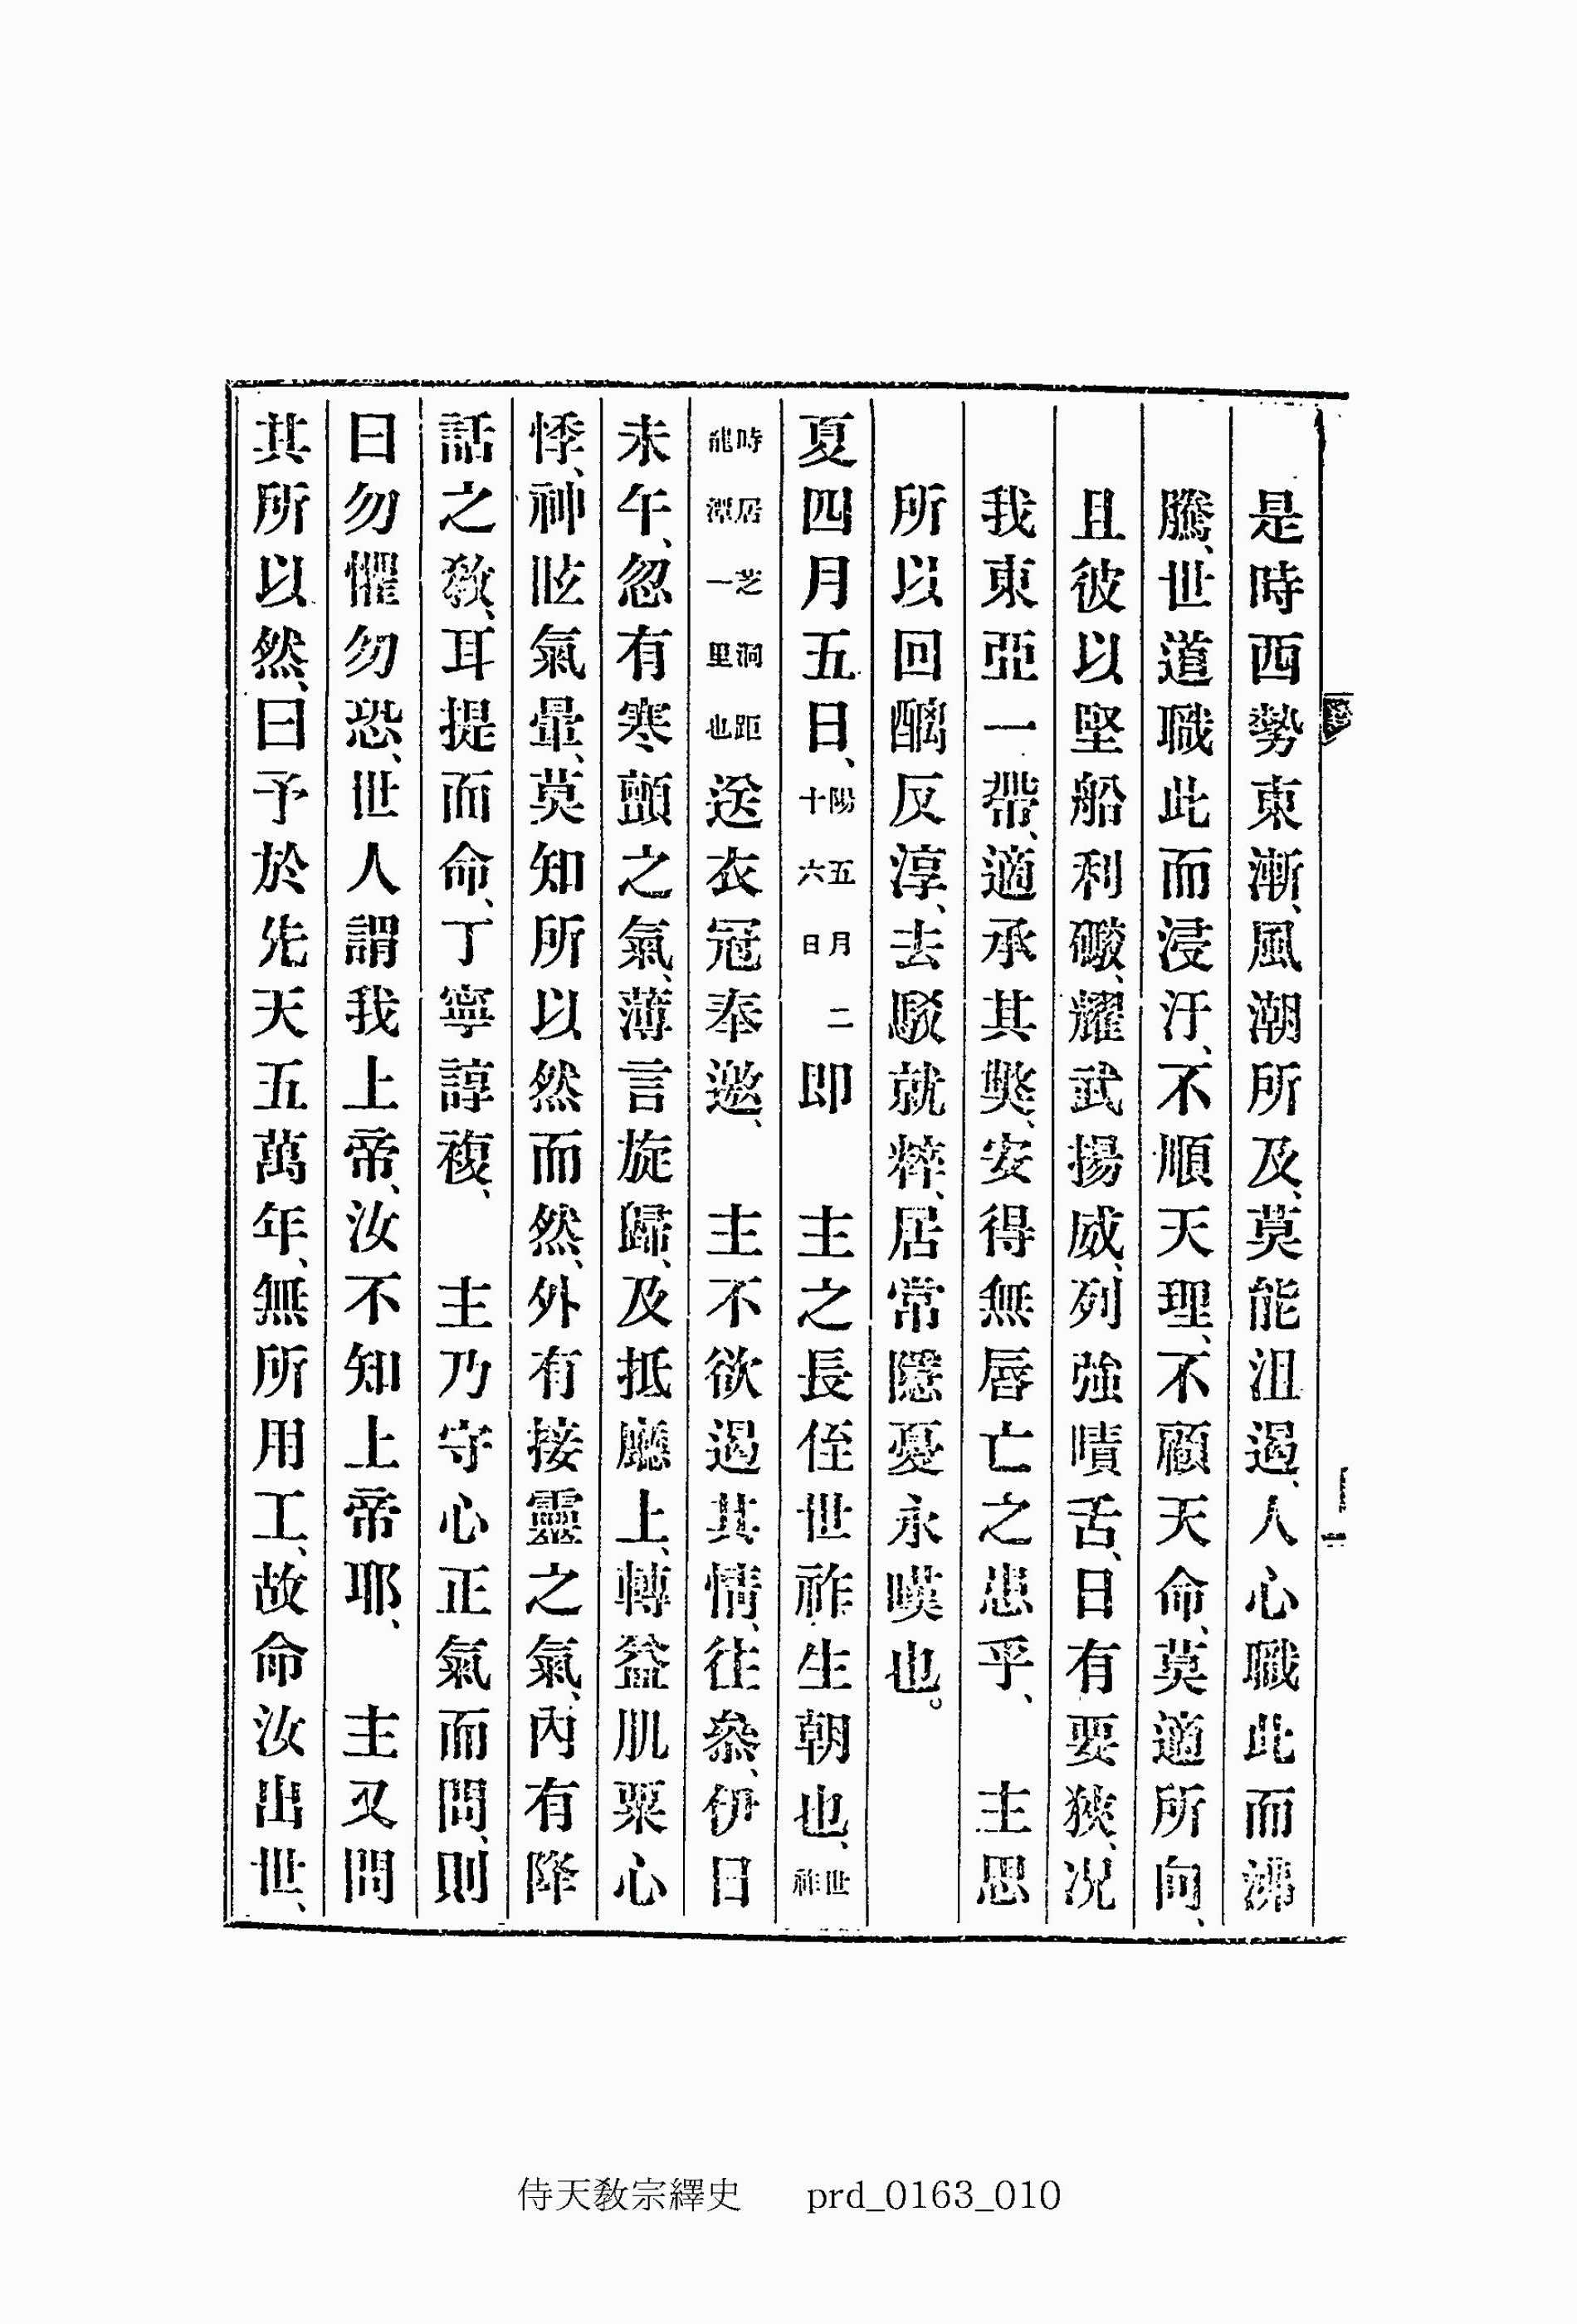 是時西勢東漸、風潮所及、莫能沮遏、人心職此而沸
騰、世道職此而浸汙、不順天理、不顧天命、莫適所向、
且彼以堅船利礮、耀武揚威、列強嘖舌、日有要狹、况
我東亞一帶、適承其獘、安得無唇亡之患乎、 主思
所以回醨反淳、去駁就粹、居常隱憂永嘆也。
夏四月五日、陽五月二十六日即 主之長侄世祚生朝也、世祚
時居芝洞距龍潭一里也送衣冠奉邀、 主不欲遏其情、往叅、伊日
未午、忽有寒顫之氣、薄言旋歸、及抵廳上、轉益肌粟心
悸、神眩氣暈、莫知所以然而然、外有接靈之氣、內有降
話之敎、耳提而命、丁寧諄複、 主乃守心正氣而問、則
曰勿懼勿恐、世人謂我上帝、汝不知上帝耶、 主又問
其所以然、曰予於先天五萬年、無所用工、故命汝出世、
侍天敎宗繹史 prd_0163_010